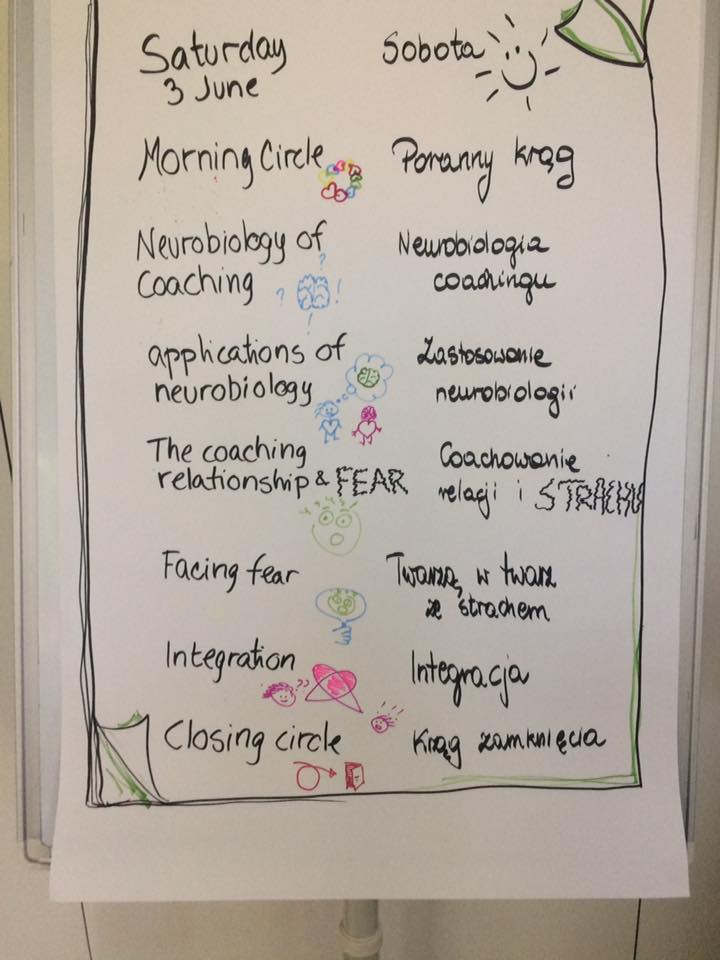 Saturday
3 June
Sobota
Morning Circle
Poranny krąg
Neurobiology of
Coaching
? ? ! !
Neurobiologia
coachingu
applications of
neurobiology
Zastosowanie
neurobiologii
The coaching
relationship & FEAR
Coachowanie
relacji i STRACHU
Facing fear
Twarzą w twarz
ze strachem
Integration
??
Integracja
Closing circle
Krąg zamknięcia